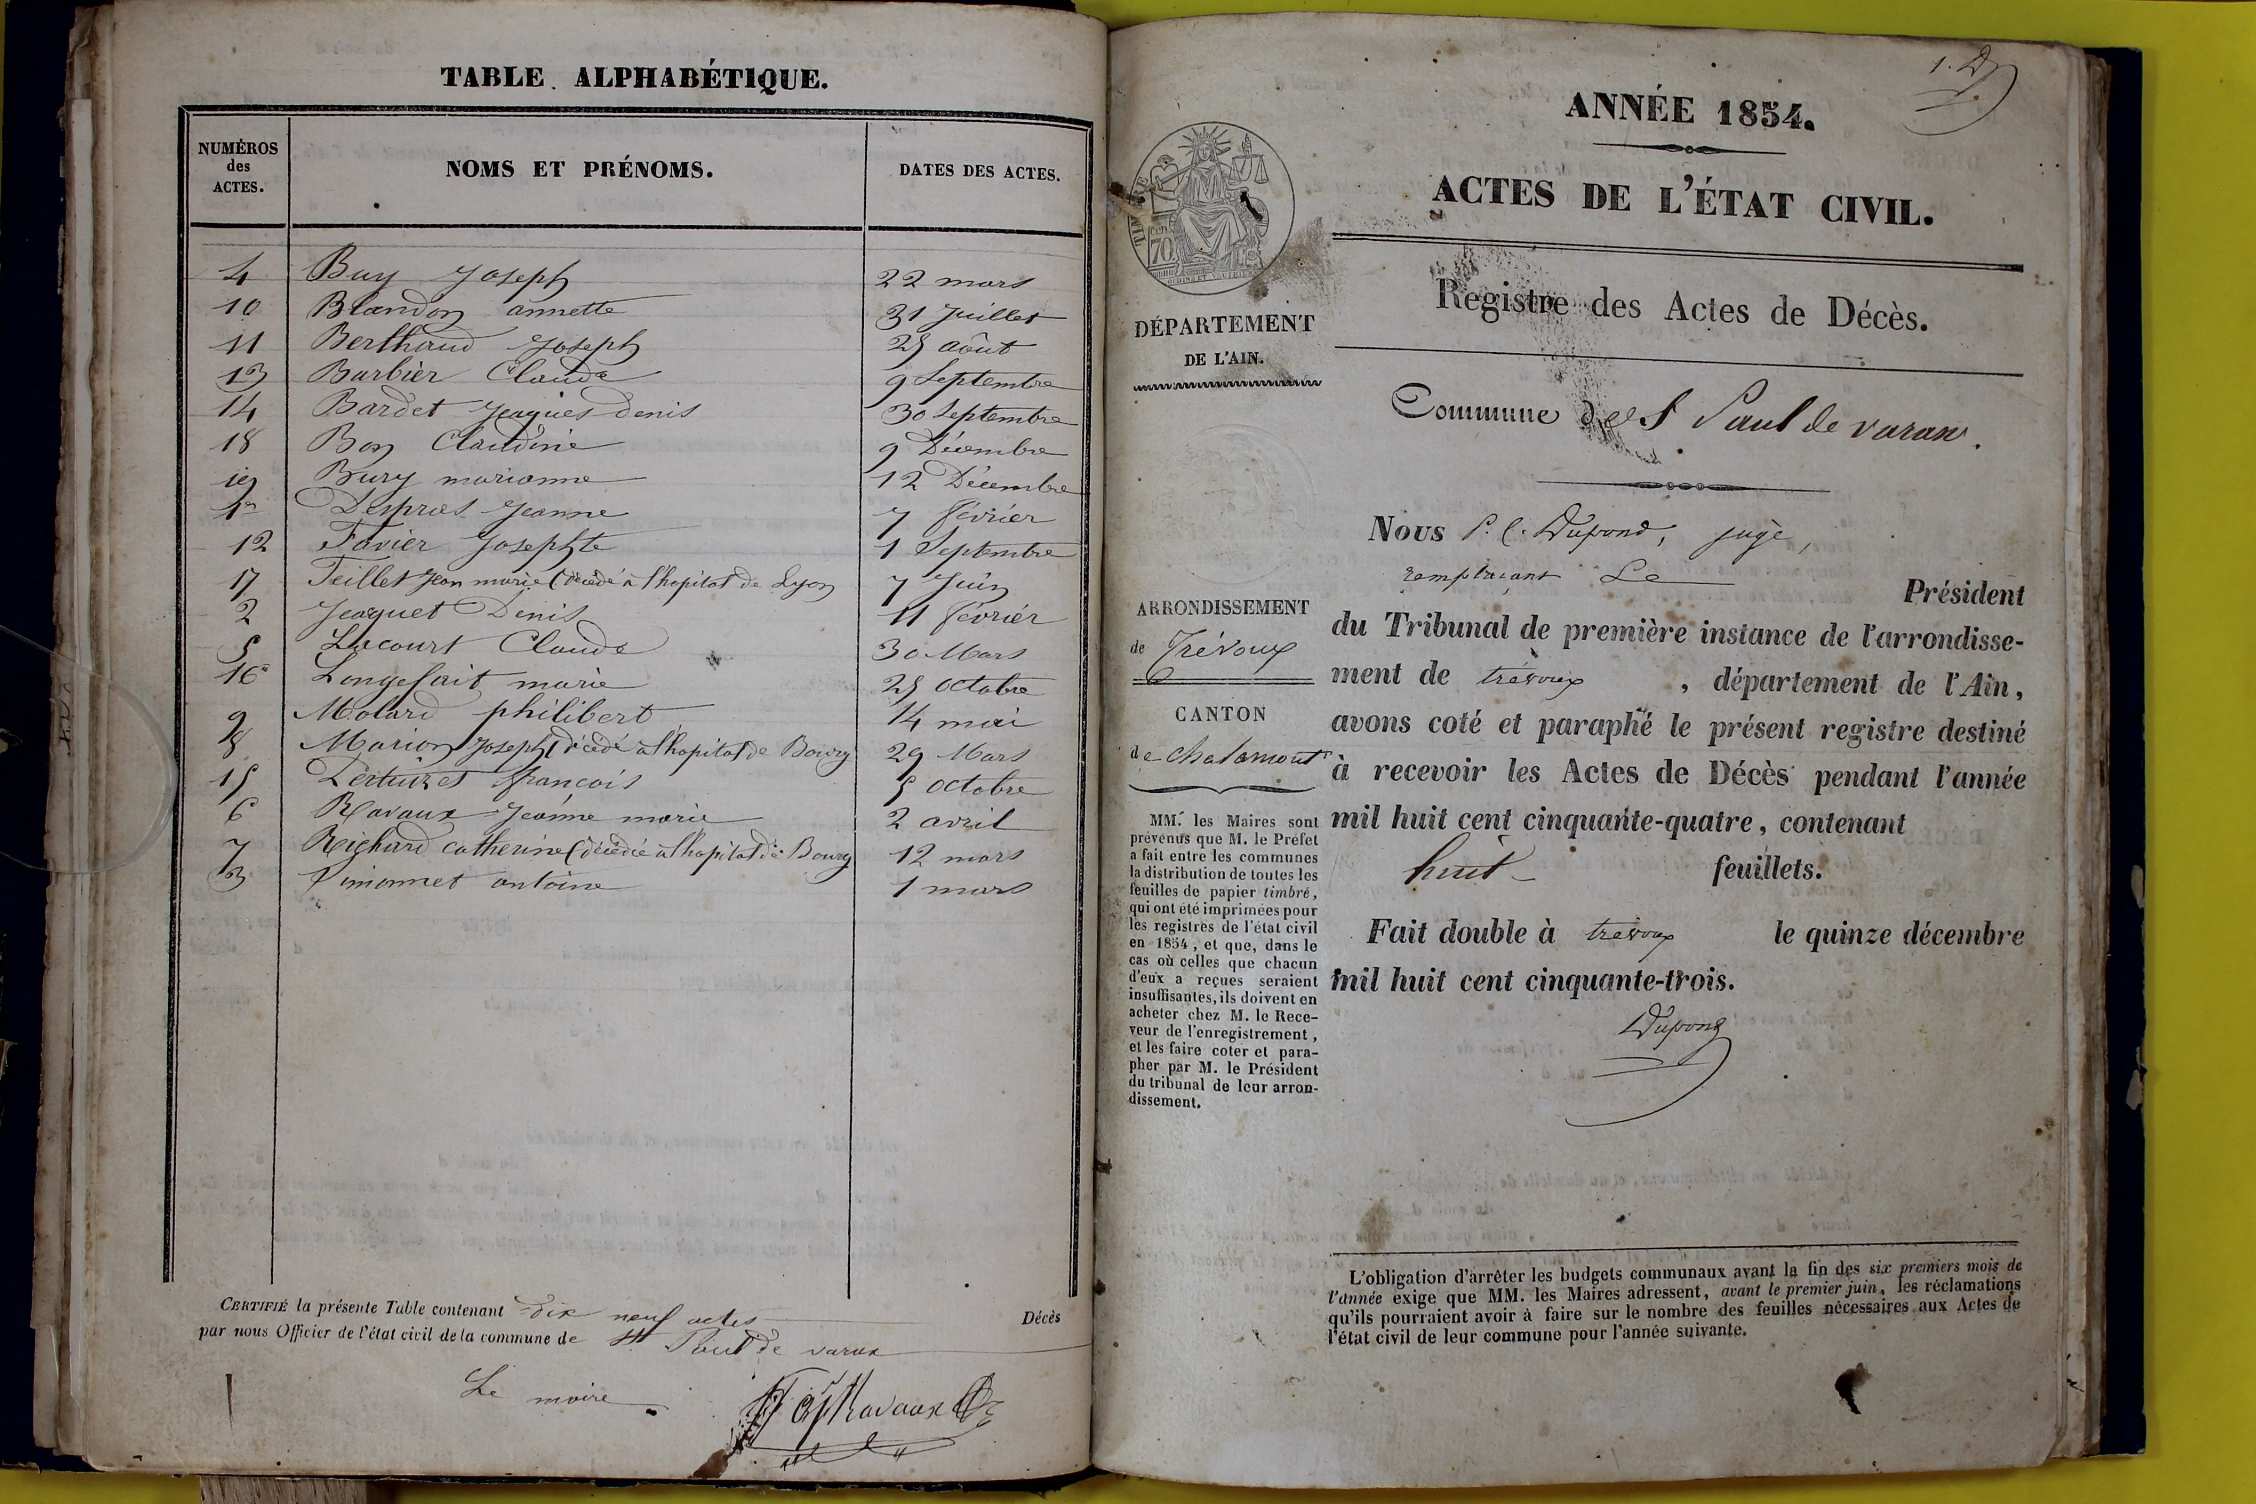 TABLE ALPHABÉTIQUE.
NUMÉROS des ACTES. NOMS ET PRÉNOMS. DATES DES ACTES.
4 Buy Joseph 22 mars
10 Blandon annette 31 Juillet
11 Berthaud Joseph 25 août
13 Barbier Claude 9 Septembre
14 Bardet Jaques denis 30 Septembre
18 Bon Claudine 9 Décembre
19 Bury marianne 12 Décembre
1er Despras Jeanne 7 février
12 Favier Josephte 1 Septembre
17 Feillet Jean marie (décédé à l'hopital de Lyon 7 Juin
2 Jeaquet Denis 11 février
5 Lacourt Claude 30 Mars
16 Longefait marie 25 octobre
9 Molard philibert 14 mai
8 Marion Joseph (décédé à l'hopital de Bourg 29 Mars
15 françois 5 octobre
6 Ravaux Jeanne marie 2 avril
7 Richard catherine (décédée à l'hopital de Bourg 12 mars
3 antoine 1 mars
CERTIFIÉ la présente Table contenant dix neuf actes Décès
par nous Officier de l'état civil de la commune de St Paul de varax
Le maire
Ravaux
1. D
ANNÉE 1854.
ACTES DE L'ÉTAT CIVIL.
Registre des Actes de Décès.
Commune de St Paul de varax.
TIMBRE
70 cen
DÉPARTEMENT
DE L'AIN.
ARRONDISSEMENT
de Trévoux
CANTON
de chalamont
MM. les Maires sont
prévenus que M. le Préfet
a fait entre les communes
la distribution de toutes les
feuilles de papier timbré,
qui ont été imprimées pour
les registres de l'état civil
en 1854, et que, dans le
cas où celles que chacun
d'eux a reçues seraient
insuffisantes, ils doivent en
acheter chez M. le Rece-
veur de l'enregistrement,
et les faire coter et para-
pher par M. le Président
du tribunal de leur arron-
dissement.
Nous P. C. Dupond, juge,
remplaçant Le Président
du Tribunal de première instance de l'arrondisse-
ment de trévoux, département de l'Ain,
avons coté et paraphé le présent registre destiné
à recevoir les Actes de Décès pendant l'année
mil huit cent cinquante-quatre, contenant
huit feuillets.
Fait double à trévoux le quinze décembre
mil huit cent cinquante-trois.
Dupond
L'obligation d'arrêter les budgets communaux avant la fin des six premiers mois de
l'année exige que MM. les Maires adressent, avant le premier juin, les réclamations
qu'ils pourraient avoir à faire sur le nombre des feuilles nécessaires aux Actes de
l'état civil de leur commune pour l'année suivante.